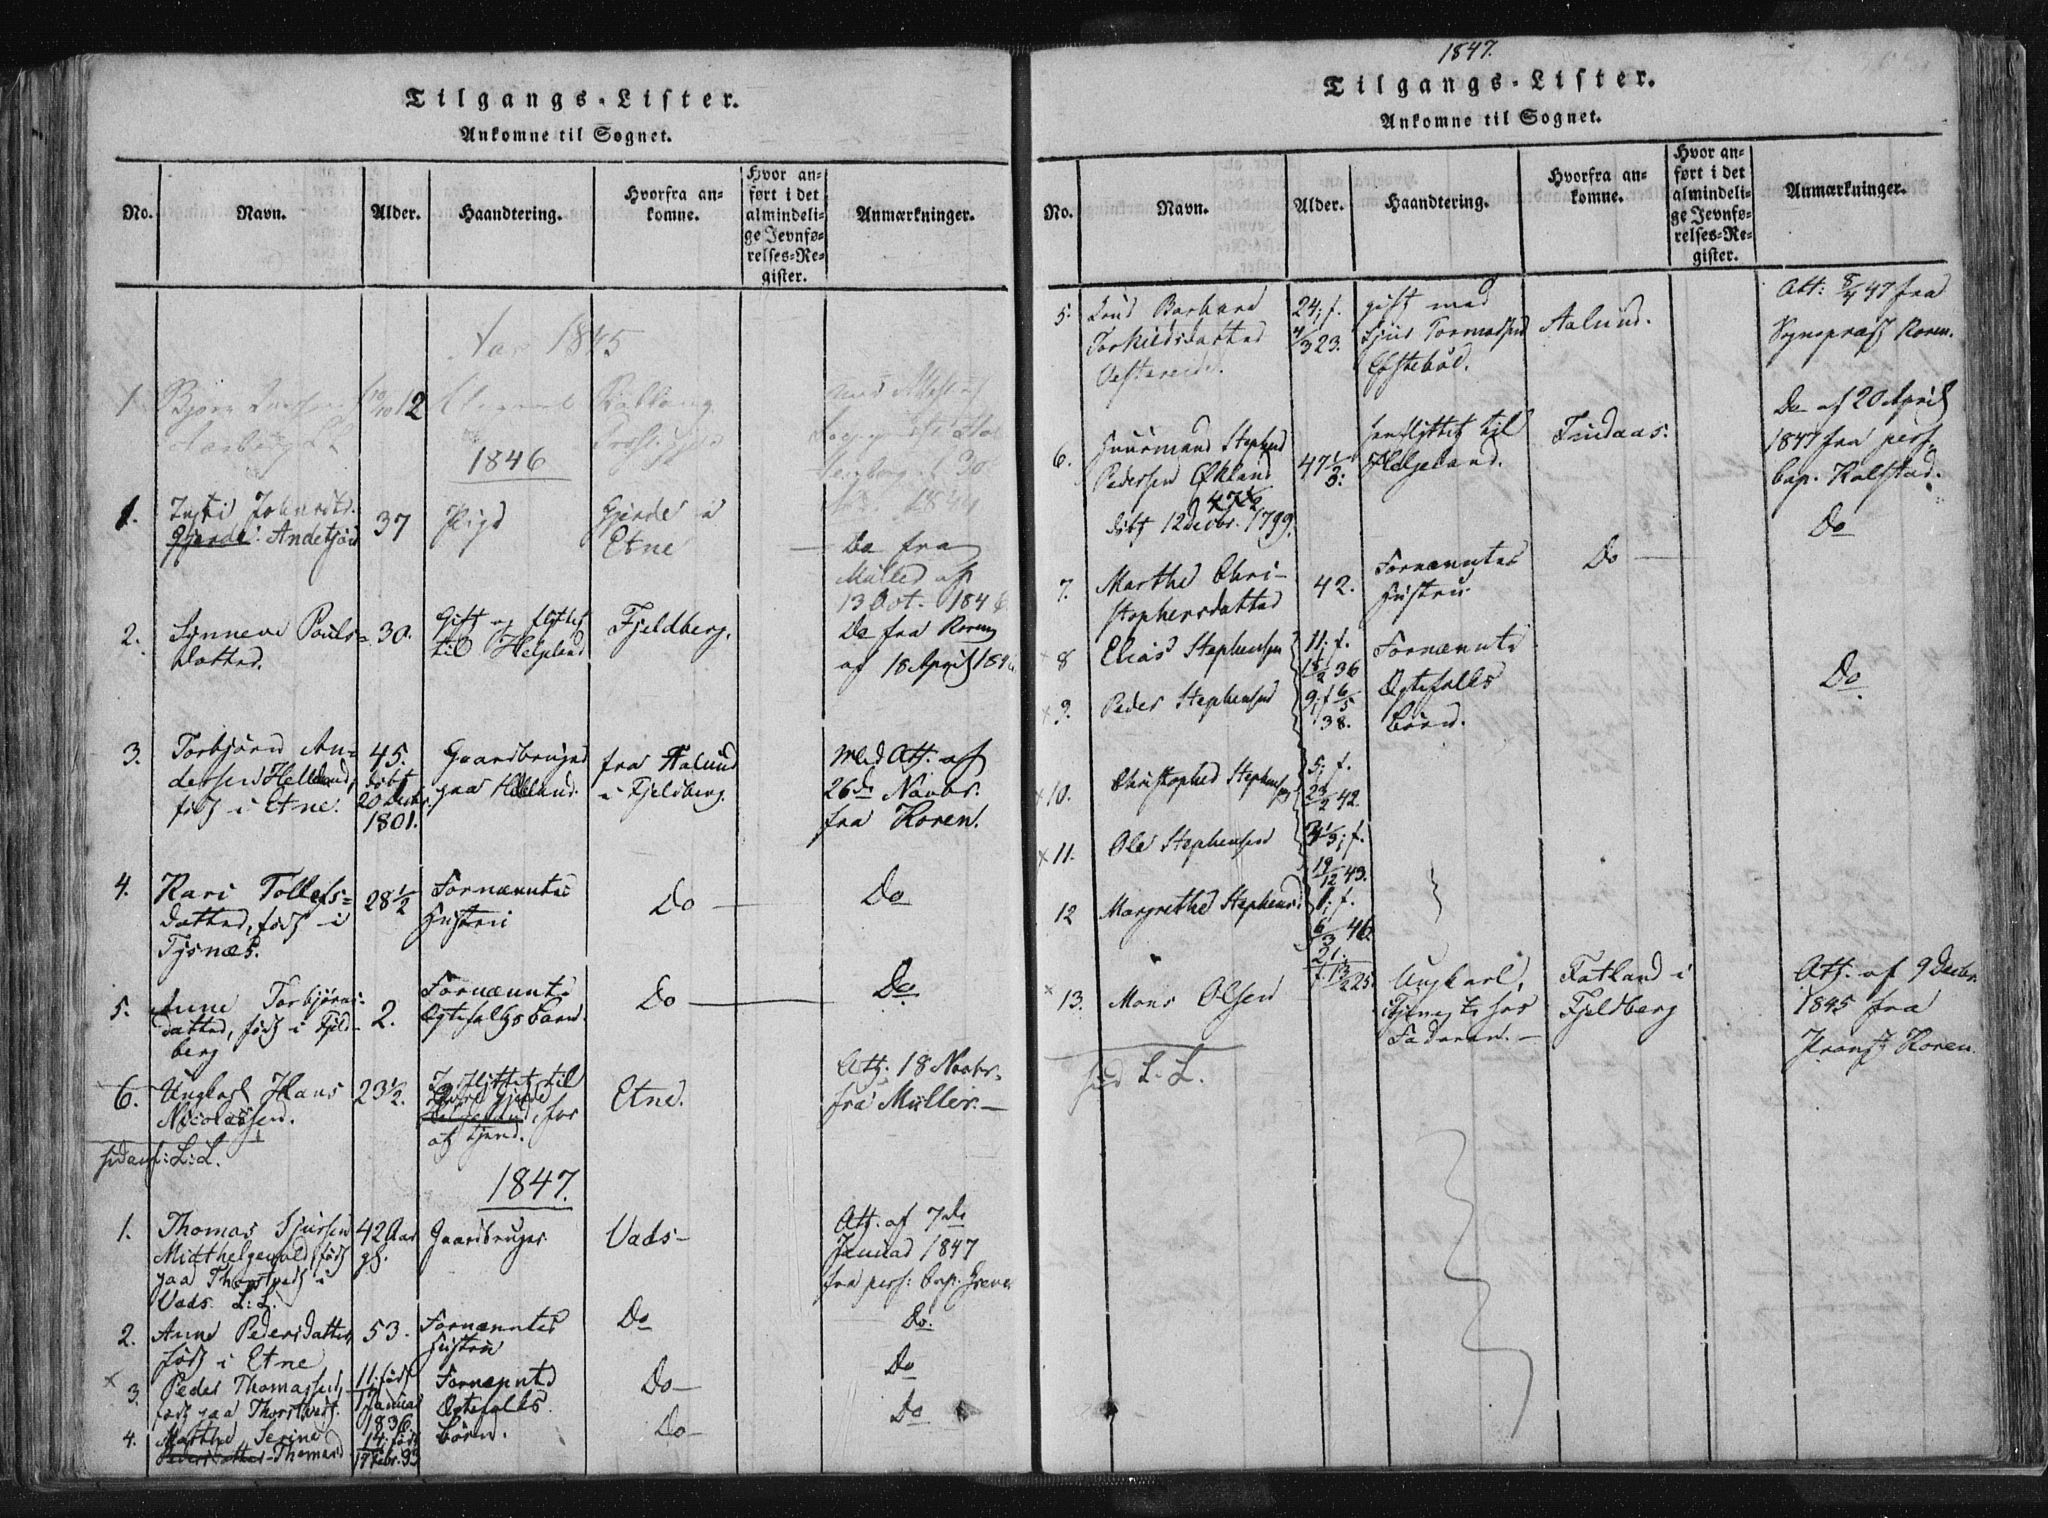 Tilgangs-Lister.
Ankomne til Sognet.
No.
Navn.
Alder.
Haandtering.
Hvorfra an-
komne.
Hvor an-
ført i det
almindeli-
ge Jevnfø-
relses-Re-
gister.
Anmærkninger.
Aar 1845
1
Bjørn
12
1846
1.
Gjerde: 
37
Pige
Gjerde i
Etne
Do fra
Müller af
13 Oct. 1846
2.
Synneve Pouls-
datter.
30.
Gift og flyttet
til Helgeland
Fjeldberg.
Do fra Koren
af 18 April 1846
3.
Torbjørn An-
dersen Helleland,
født i Etne.
45.
døbt
20 Decbr.
1801.
Gaardbruger
paa Helleland.
fra Aalund
i Fjeldberg.
med Att. af
26de Novbr.
fra Koren.
4.
Kari Tollefs-
datter, født i
Tysnæs.
28½
Fornænntes
Hustru
Do
Do
5.
Anne Torbjørns-
datter, født i Fjeld-
berg
2.
Fornænnte
Egtefolks Barn.
Do
Do
6.
Ungkarl Hans
Nicolassen.
23½.
Indflyttet til
for
at tjene.
Etne.
Att. 18 Novbr.
fra Müller.-
L: L.
1847.
1.
Thomas Sjursen
Midthelgevold, født
paa Thorstvedt i
Vads. L: L.
42 Aar
gl.
Gaardbruger
Vads-
Att. af 7de
Januar 1847
fra pers: Cap. Greve
2.
Anne Pedersdatter
født i Etne
53.
Fornænntes
Hustru
Do
Do.
3.
Peder Thomassen,
født paa Thorstvedt.
11. født
Januar
1836.
Fornænnte
Egtefolks
Børn.
Do-
Do
4.
Marthe Serine
Pedersdatter Thomasd.
14. født
17 Febr. 33
Do-
Do
1847.
Tilgangs-Lister.
Ankomne til Sognet.
No.
Navn.
Alder.
Haandtering.
Hvorfra an-
komne.
Hvor an-
ført i det
almindeli-
ge Jevnfø-
relses-Re-
gister.
Anmærkninger.
5.
Barbara
Torkildsdatter
24, f.
4/3 23.
gift med
Sjur Tormodsen
Efstebøl.
Aalund.
Att: 8/4 47 fra
Sognepræst Koren.
6.
Huusmand Stephen
Pedersen Økland
47½
døbt 12 Decbr. 1799.
47 1/3:
henflyttet til
Helgeland.
Findaas.
Do af 20 April
1847 fra pers.
Cap. Kolstad.
7.
Marthe Chri-
stophersdatter
42.
Fornænntes
Hustru
Do
Do
8
Elias Stephensen
11, f.
15/2 36
Fornænnte
Egtefolks
Børn.
Do.
9.
Peder Stephensen
9, f 6/5
38.
10.
Christopher Stephensen
5, f.
23/2 42.
11.
Ole Stephensen
3 1/3, f.
19/12 43.
12
Margrethe Stephensd
1, f.
6/3 46.
13.
Mons Olsen
21.
f. 13/2 25.
Ungkarl,
Tjeneste hos
Faderen.-
Fatland i
Fjeldberg
Att. af 9 Decbr.
1845 fra
Provst Koren.
L. L.